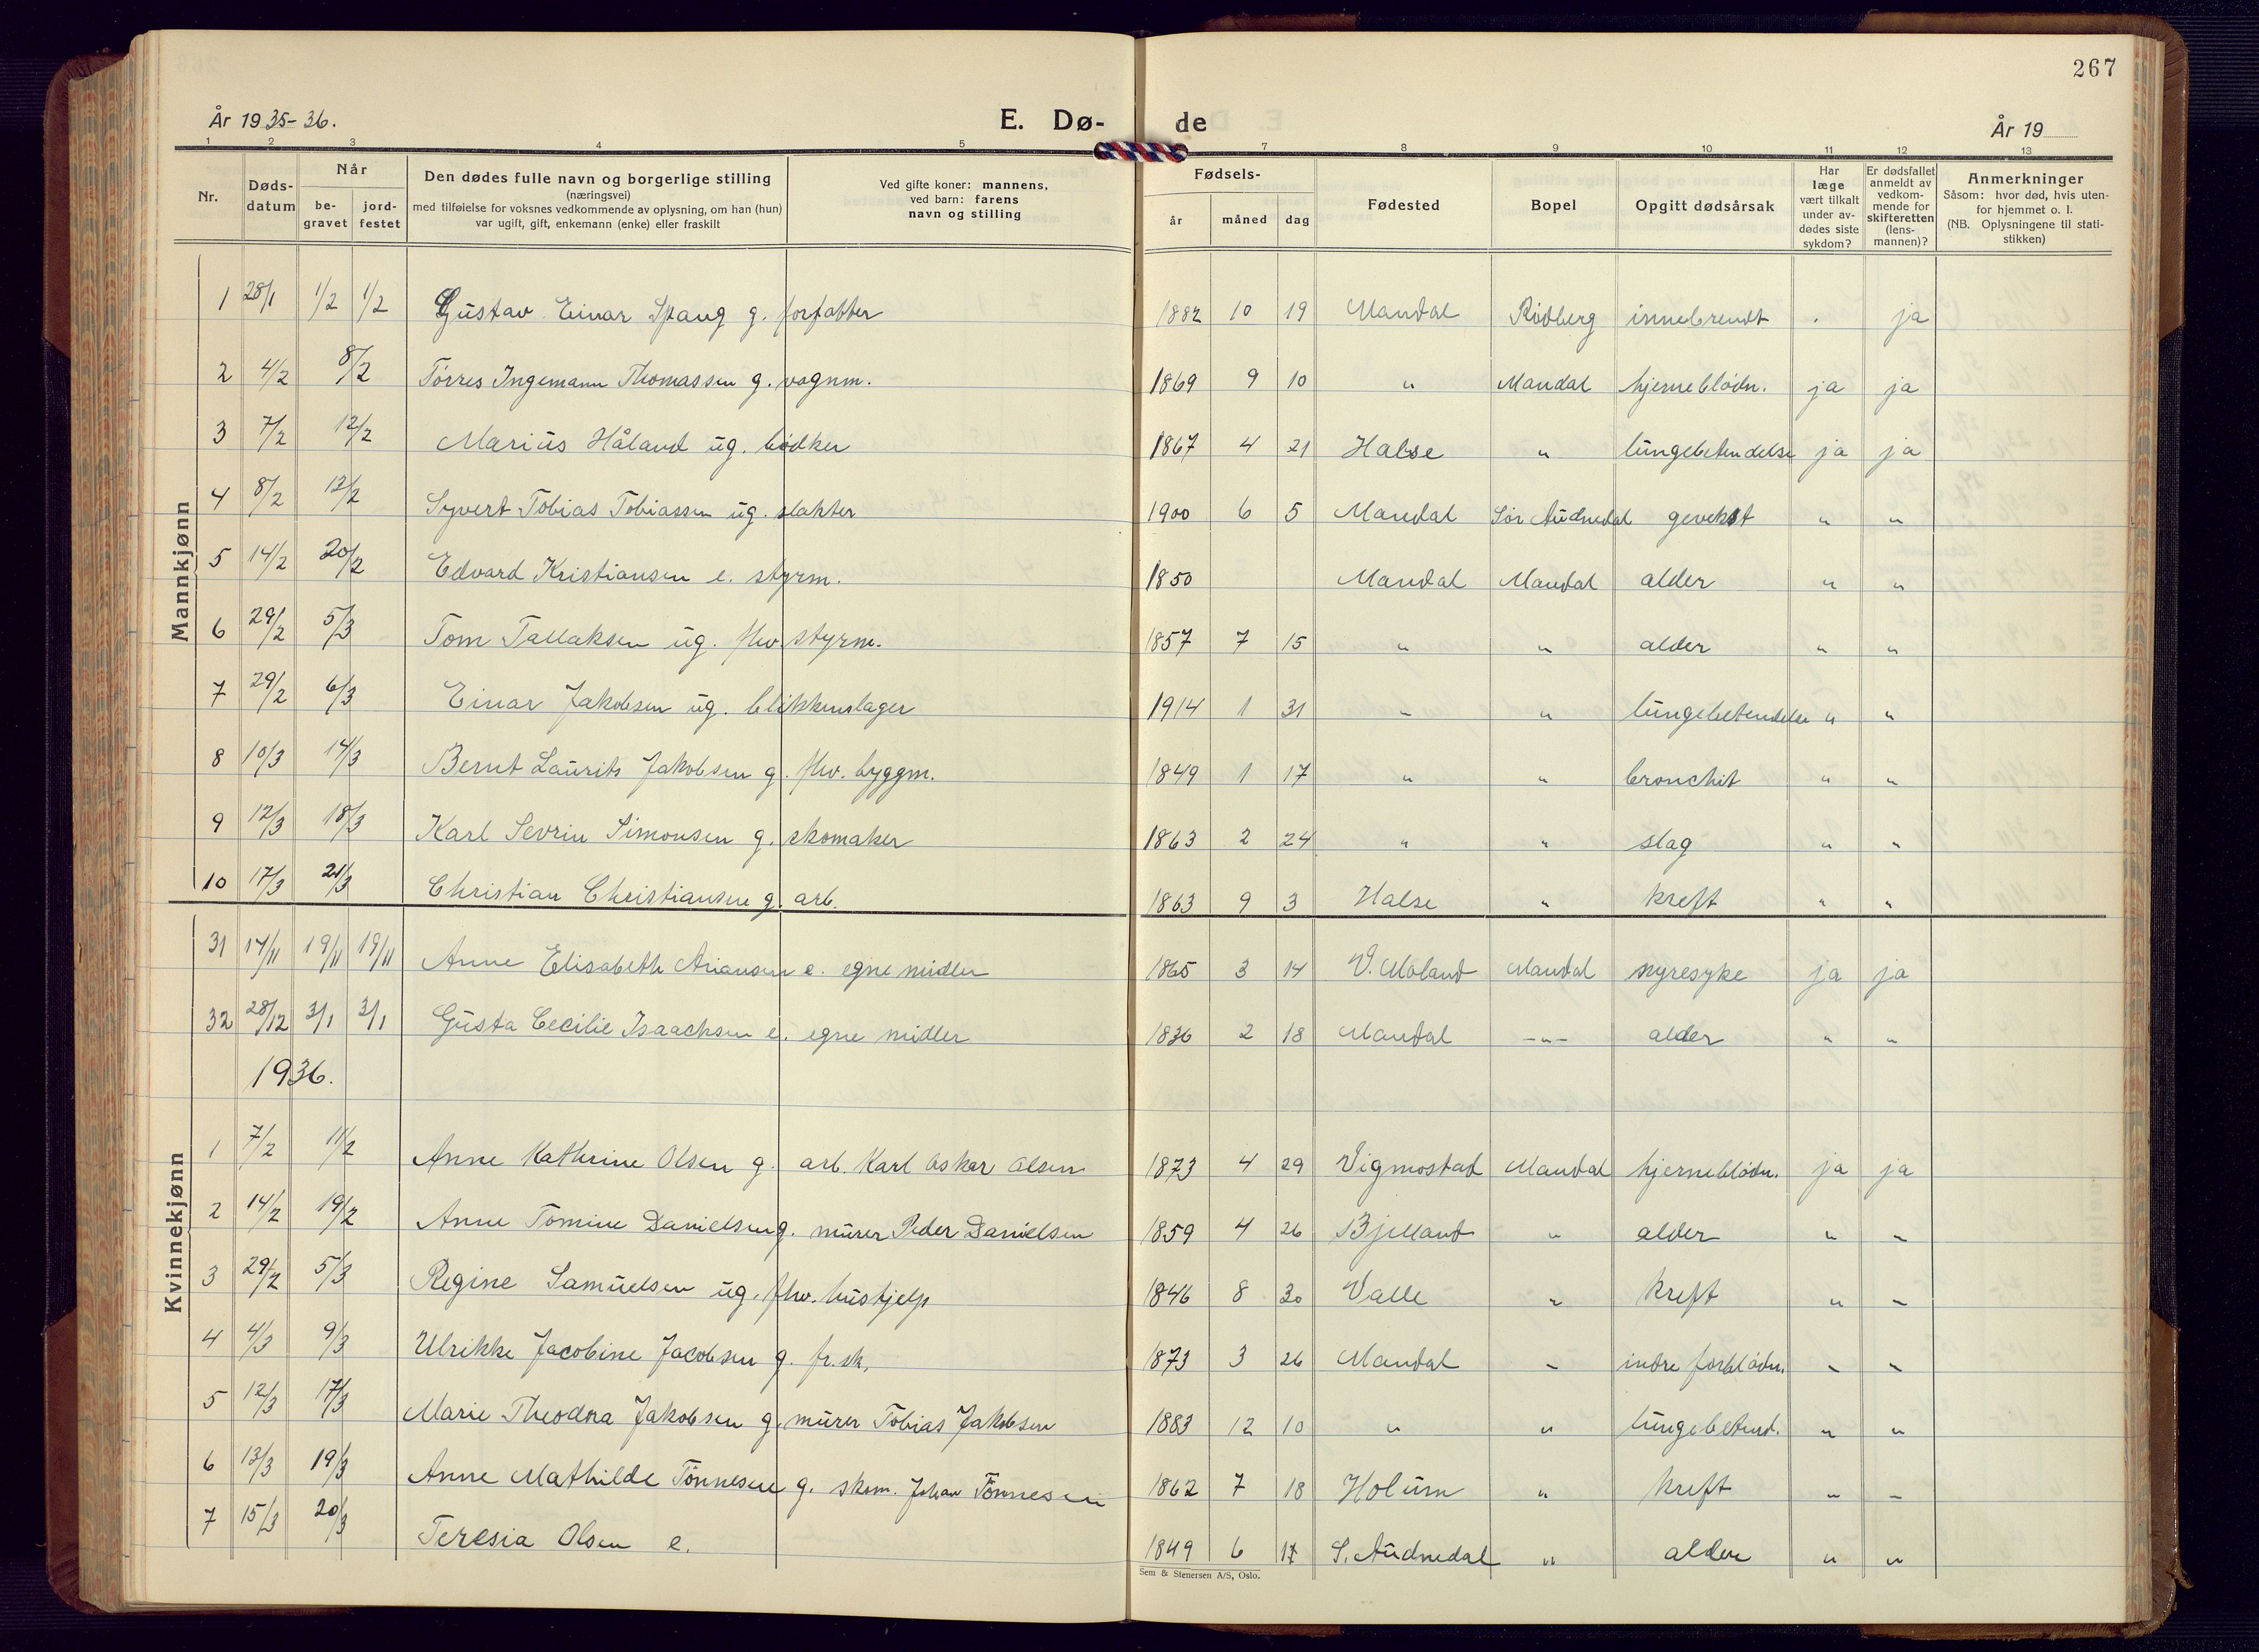 267
År 1935-36.
E. Dø-de
År 19
1 2 3 4 5 7 8 9 10 11 12 13
Nr.
Døds-
datum
Når
be-
gravet
jord-
festet
Den dødes fulle navn og borgerlige stilling
(næringsvei)
med tilføielse for voksnes vedkommende av oplysning, om han (hun)
var ugift, gift, enkemann (enke) eller fraskilt
Ved gifte koner: mannens,
ved barn: farens
navn og stilling
Fødsels-
år måned dag
Fødested
Bopel
Opgitt dødsårsak
Har
læge
vært tilkalt
under av-
dødes siste
sykdom?
Er dødsfallet
anmeldt av
vedkom-
mende for
skifteretten
(lens-
mannen)?
Anmerkninger
Såsom: hvor død, hvis uten-
for hjemmet o. l.
(NB. Oplysningene til stati-
stikken)
Mannkjønn
1 28/1 1/2 1/2 Gustav Einar Spang g. forfatter 1882 10 19 Mandal Rødberg innebrendt . ja
2 4/2 8/2 Tørres Ingemann Thomassen g. vognm. 1869 9 10 " Mandal hjerneblødn. ja ja
3 7/2 12/2 Marius Håland ug. bødker 1867 4 21 Halse " lungebetendelse ja ja
4 8/2 12/2 Syvert Tobias Tobiassen ug. slakter 1900 6 5 Mandal Sør Audnedal gevekst " "
5 14/2 20/2 Edvard Kristiansen e. styrm. 1850 Mandal Mandal alder " "
6 29/2 5/3 Tom Tallaksen ug. fhv. styrm. 1857 7 15 " " alder " "
7 29/2 6/3 Einar Jakobsen ug. blikkenslager 1914 1 31 " " lungebetendelse " "
8 10/3 14/3 Bernt Laurits Jakobsen g. fhv. byggm. 1849 1 17 " " bronchit " "
9 12/3 18/3 Karl Sevrin Simonsen g. skomaker 1863 2 24 " " slag " "
10 17/3 21/3 Christian Christiansen g. arb. 1863 9 3 Halse " kreft " "
Kvinnekjønn
31 14/11 19/11 19/11 Anne Elisabeth Ariansen e. egne midler 1865 3 14 V. Moland Mandal nyresyke ja ja
32 28/12 3/1 3/1 Gusta Cecilie Isaachsen e. egne midler 1836 2 18 Mandal -"- alder " "
1936.
1 7/2 11/2 Anne Kathrine Olsen g. arb. Karl Oskar Olsen 1873 4 29 Vigmostad Mandal hjerneblødn. ja ja
2 14/2 19/2 Anne Tomine Danielsen g. murer Peder Danielsen 1859 4 26 Bjelland " alder " "
3 29/2 5/3 Regine Samuelsen ug. fhv. hushjelp 1846 8 30 Valle " kreft " "
4 4/3 9/3 Ulrikke Jacobine Jacobsen g. fr. sk. 1873 3 26 Mandal " indre forblødn. " "
5 12/3 17/3 Marie Theodora Jakobsen g. murer Tobias Jakobsen 1883 12 10 " " lungebetend. " "
6 13/3 19/3 Anne Mathilde Tønnesen g. skom. Johan Tønnesen 1862 7 18 Holum " kreft " "
7 15/3 20/3 Teresia Olsen e. 1849 6 S. Audnedal " alder " "
Sem & Stenersen A/S, Oslo.